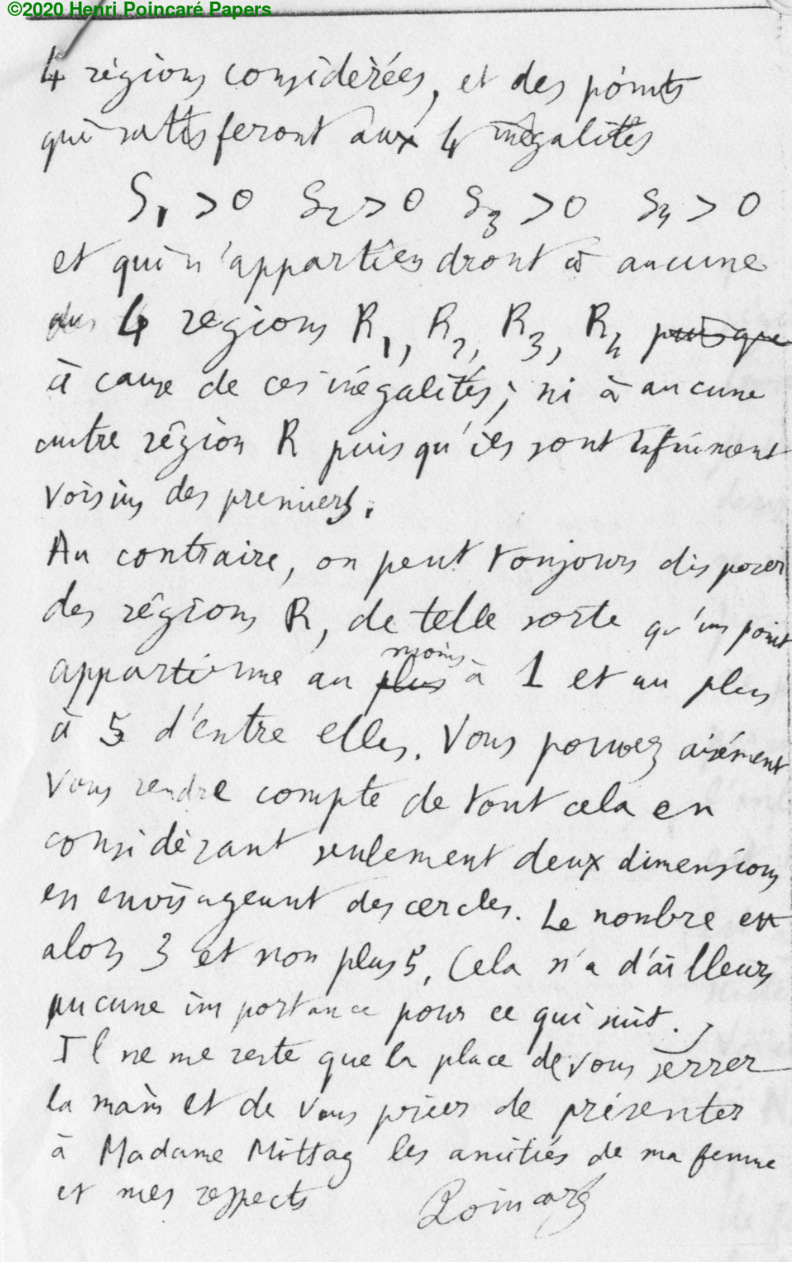 ©2020 Henri Poincaré Papers
4 régions considérées, et des points
qui satisferont aux 4 inégalités
S₁ > 0 S₂ > 0 S₃ > 0 S₄ > 0
et qui n'appartiendront à aucune
des 4 régions R₁, R₂, R₃, R₄ puisque
à cause de ces inégalités; ni à aucune
autre région R puisqu'ils sont infiniment
voisins des premiers.
Au contraire, on peut toujours disposer
des régions R, de telle sorte qu'un point
moins
appartienne au plus à 1 et au plus
à 5 d'entre elles. Vous pouvez aisément
vous rendre compte de tout cela en
considérant seulement deux dimensions
en envisageant des cercles. Le nombre est
alors 3 et non plus 5. Cela n'a d'ailleurs
aucune importance pour ce qui suit.
Il ne me reste que la place de vous serrer
la main et de vous prier de présenter
à Madame Mittag les amitiés de ma femme
et mes respects
Poincaré